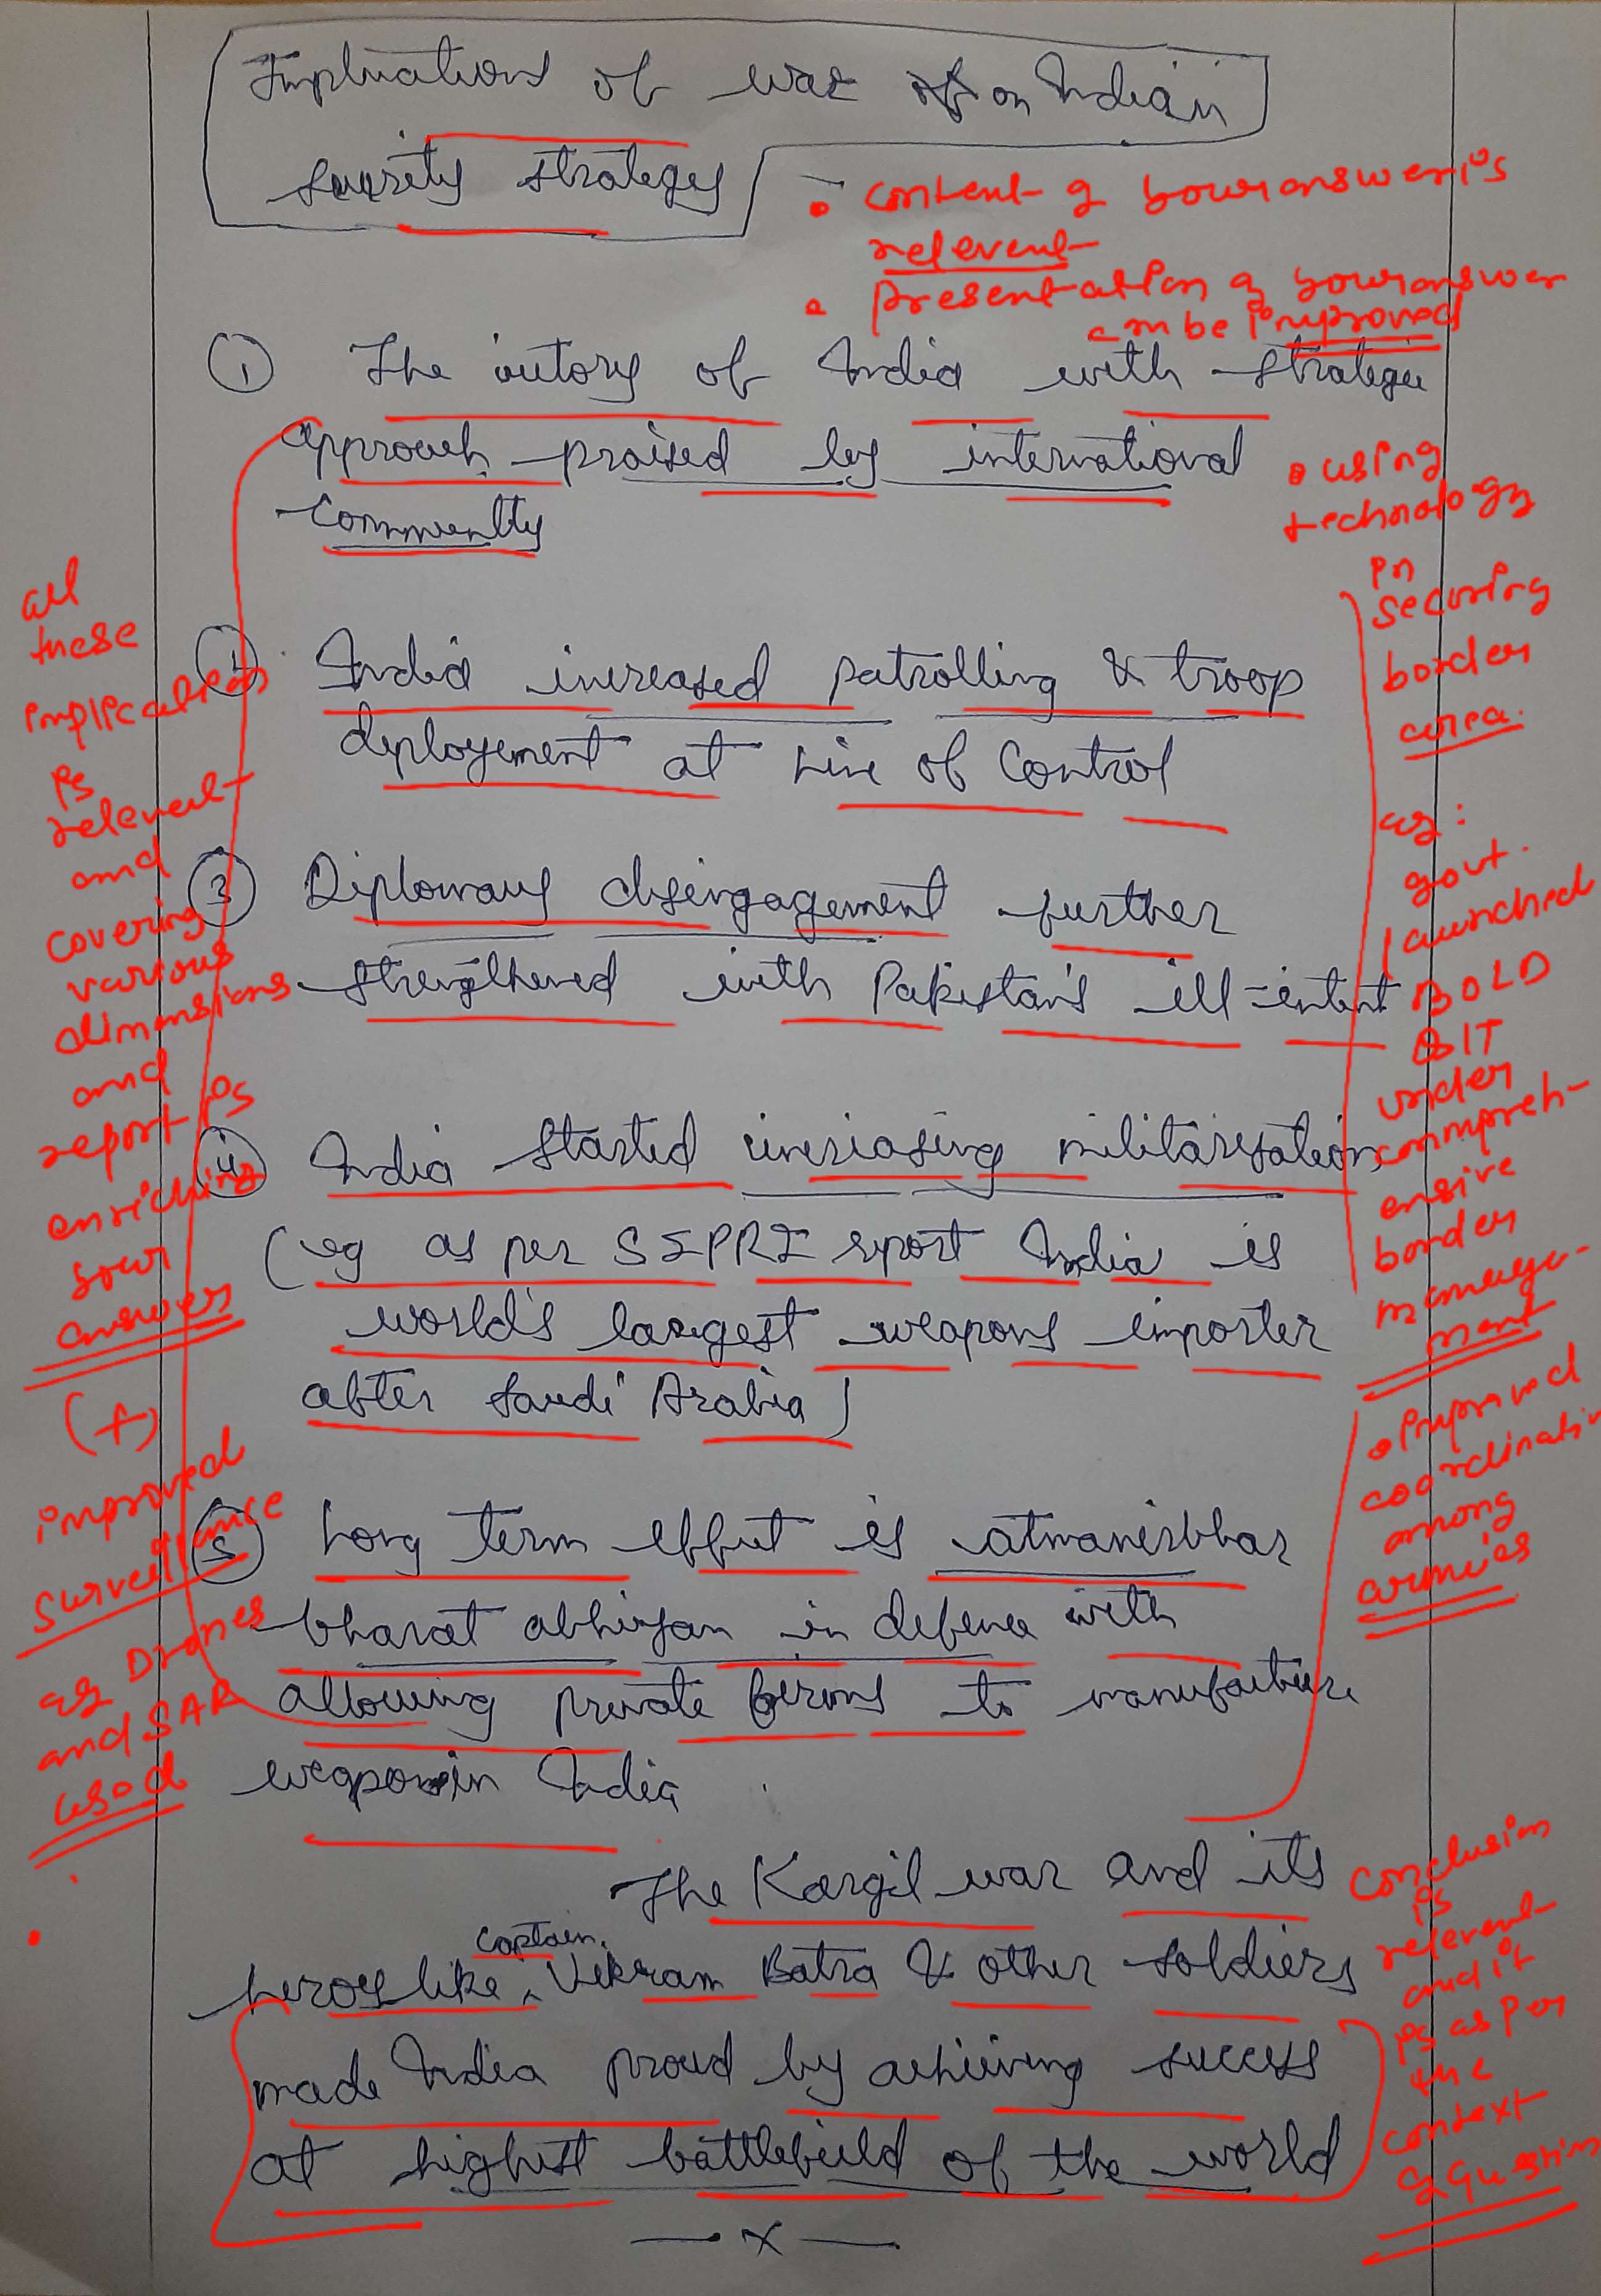 Implications of war of on Indian
security strategy
• content of your answer is
relevent
• presentation of your answer
can be improved
① The victory of India with strategic
approach praised by international
community
• using
technology
in
securing
border
area.
eg:
govt.
launched
BOLD
QIT
under
compreh-
ensive
border
manage-
ment
• improved
coordination
among
armies
India increased patrolling & troop
deployement at Line of Control
③ Diplomacy disengagement further
strengthened with Pakistan's ill-intent
④ India started increasing militarisation
(eg as per SIPRI report India is
world's largest weapons importer
after Saudi Arabia)
⑤ Long term effect is atmanirbhar
bharat abhiyan in defence with
allowing private firms to manufacture
weapons in India
all
these
implications
is
relevent
and
covering
various
dimensions
and
report is
enriching
your
answer
(+)
improved
surveillance
eg Drones
and SAR
used
The Kargil war and its
captain
heroes like ^ Vikram Batra & other soldiers
made India proud by achieving success
at highest battlefield of the world
— x —
conclusion
is
relevent
and it
is as per
the
context
of question